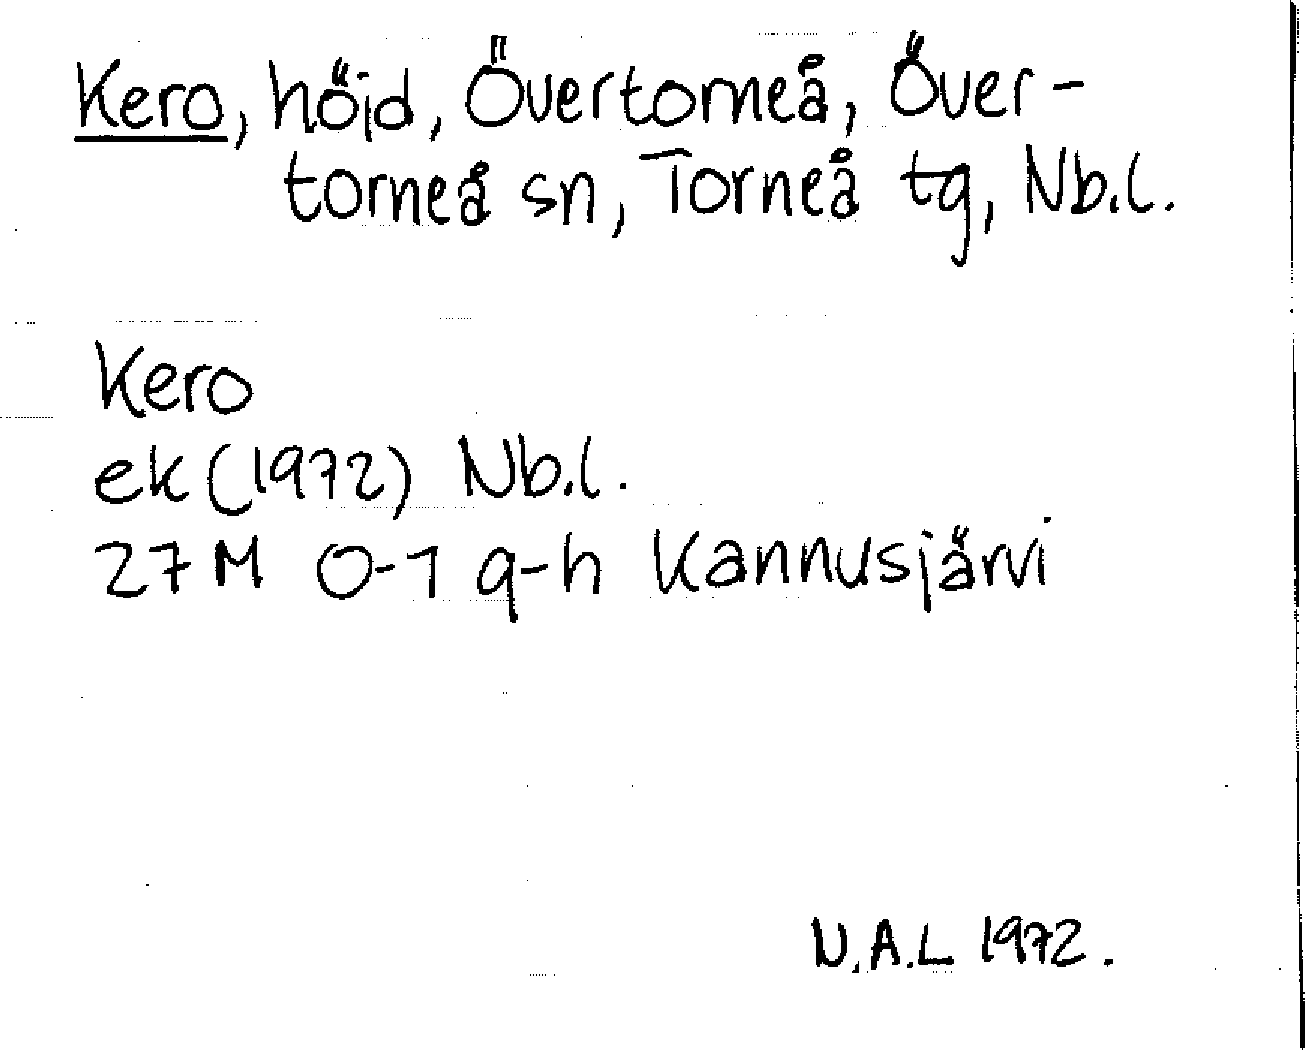 Kero, höjd, Övertorneå, Över-
torneå sn, Torneå tg, Nb.l.
Kero
ek (1972) Nb.l.
27 M 0-1 g-h Kannusjärvi
N.A.L 1972.